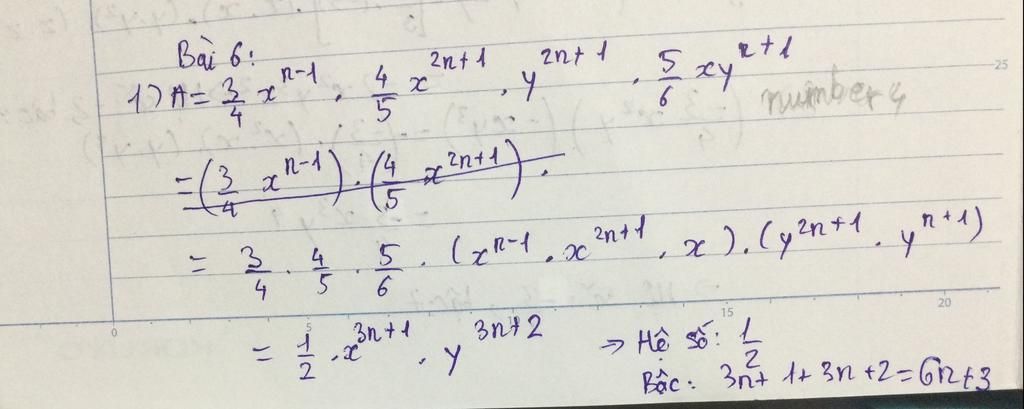 Bài 6:
1) A = 3/4 x^(n-1) . 4/5 x^(2n+1) . y^(2n+1) . 5/6 xy^(n+1)
number 4
= (3/4 x^(n-1)) . (4/5 x^(2n+1)) .
= 3/4 . 4/5 . 5/6 . (x^(n-1) . x^(2n+1) . x) . (y^(2n+1) . y^(n+1))
= 1/2 . x^(3n+1) . y^(3n+2) → Hệ số: 1/2
Bậc: 3n+1+3n+2=6n+3
0 5 15 20 25